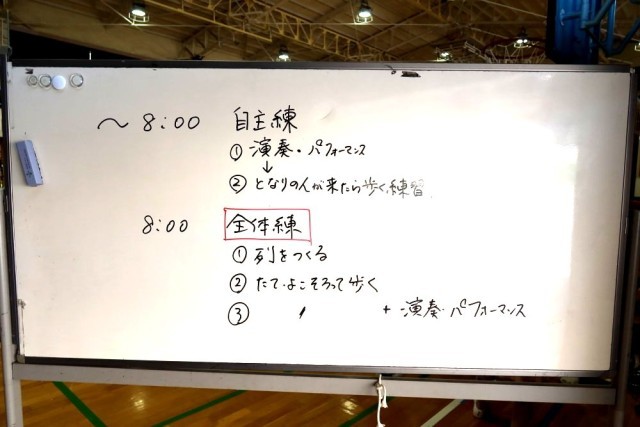 ～ 8:00 自主練
① 演奏・パフォーマンス
↓
② となりの人が来たら歩く練習
8:00 全体練
① 列をつくる
② たて・よこそろって歩く
③ 〃 + 演奏・パフォーマンス